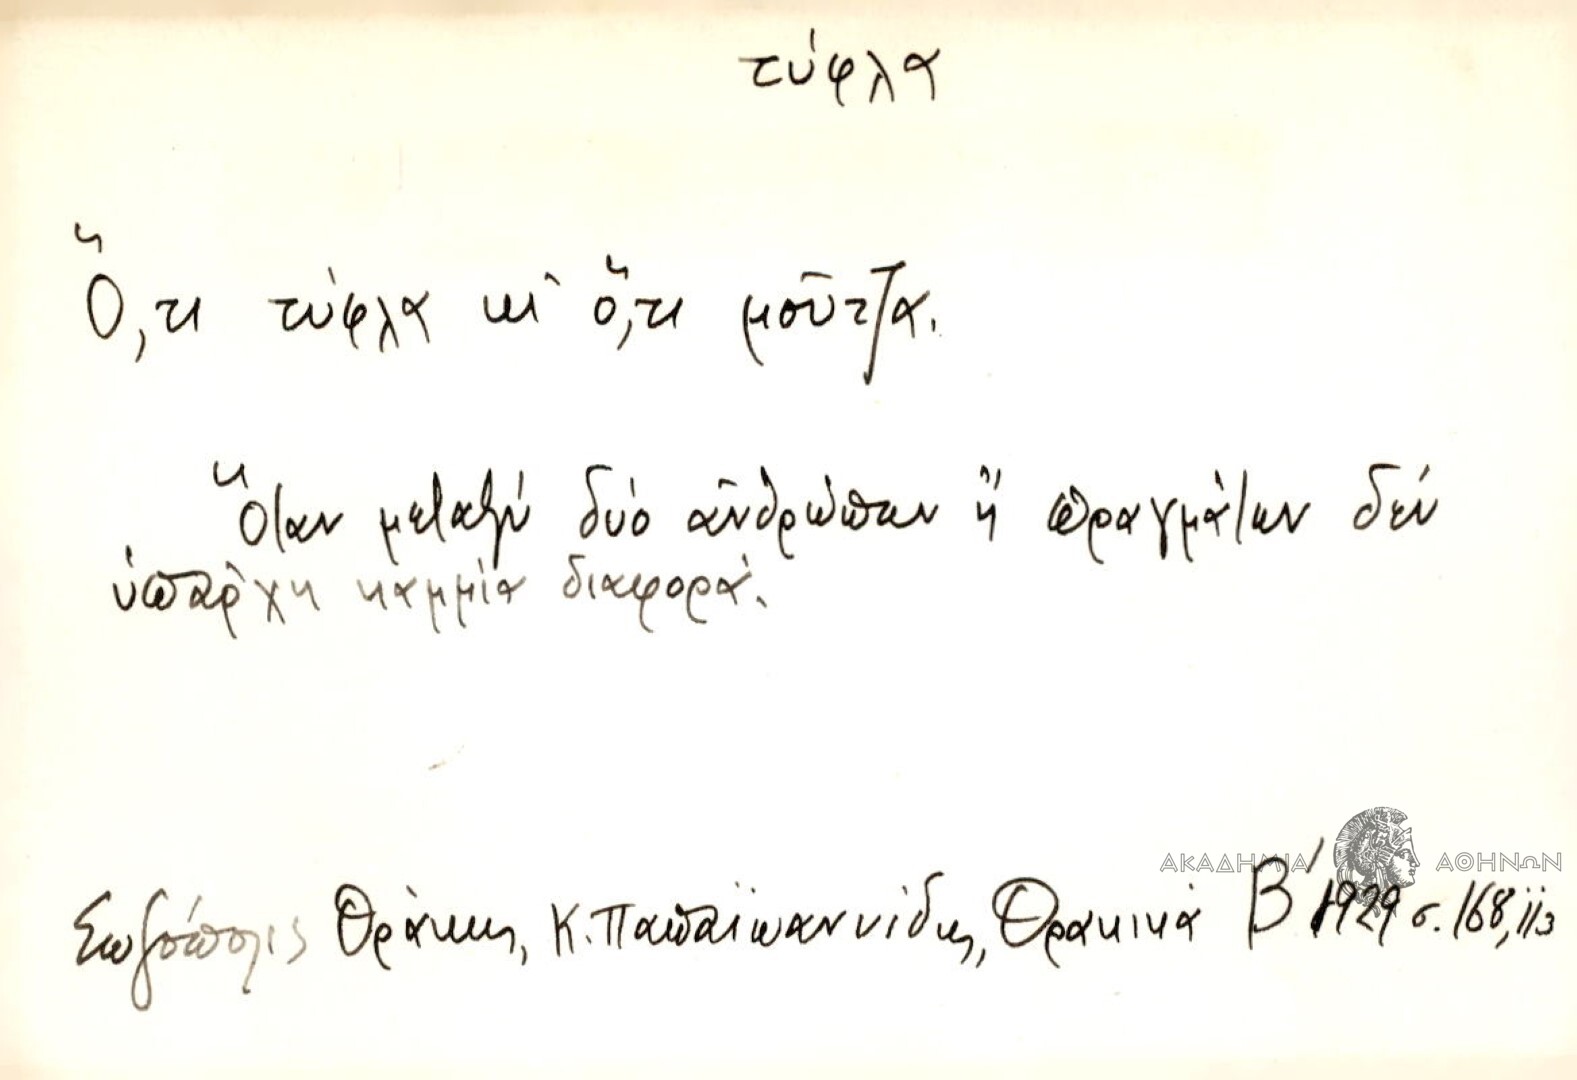 τύφλα
Ὅ,τι τύφλα κι ὅ,τι μοῦτζα.
Ὅταν μεταξύ δύο ἀνθρώπων ἤ πραγμάτων δέν
ὑπάρχη καμμία διαφορά.
ΑΚΑΔΗΜΙΑ ΑΘΗΝΩΝ
Σωζόπολις Θράκης, Κ. Παπαϊωαννίδης, Θρακικά Β' 1929 σ. 168,